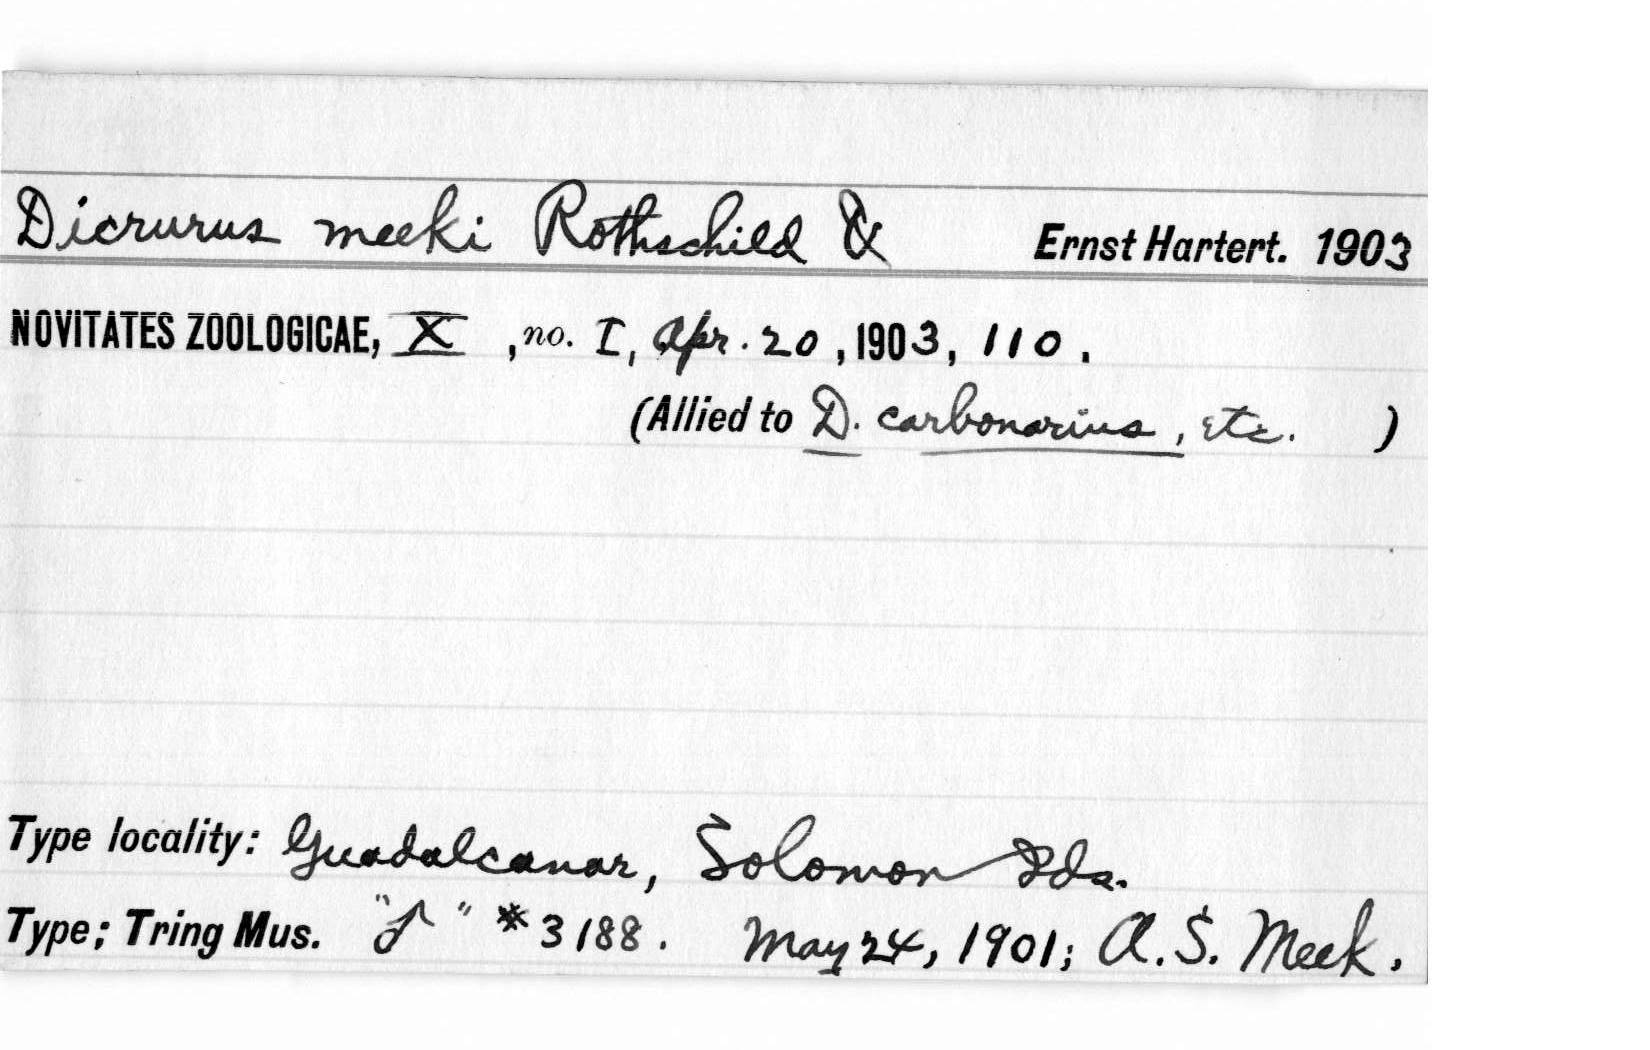 Dicrurus meeki Rothschild & Ernst Hartert. 1903
NOVITATES ZOOLOGICAE, X, no. I, Apr. 20, 1903, 110.
(Allied to D. carbonarius, etc. )
Type locality: Guadalcanar, Solomon Ids.
Type; Tring Mus. "♂" #3188. May 24, 1901; A.S. Meek.